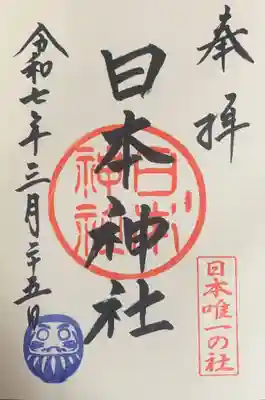 奉拝
日本神社
日本神社
日本唯一の社
令和七年三月廿五日